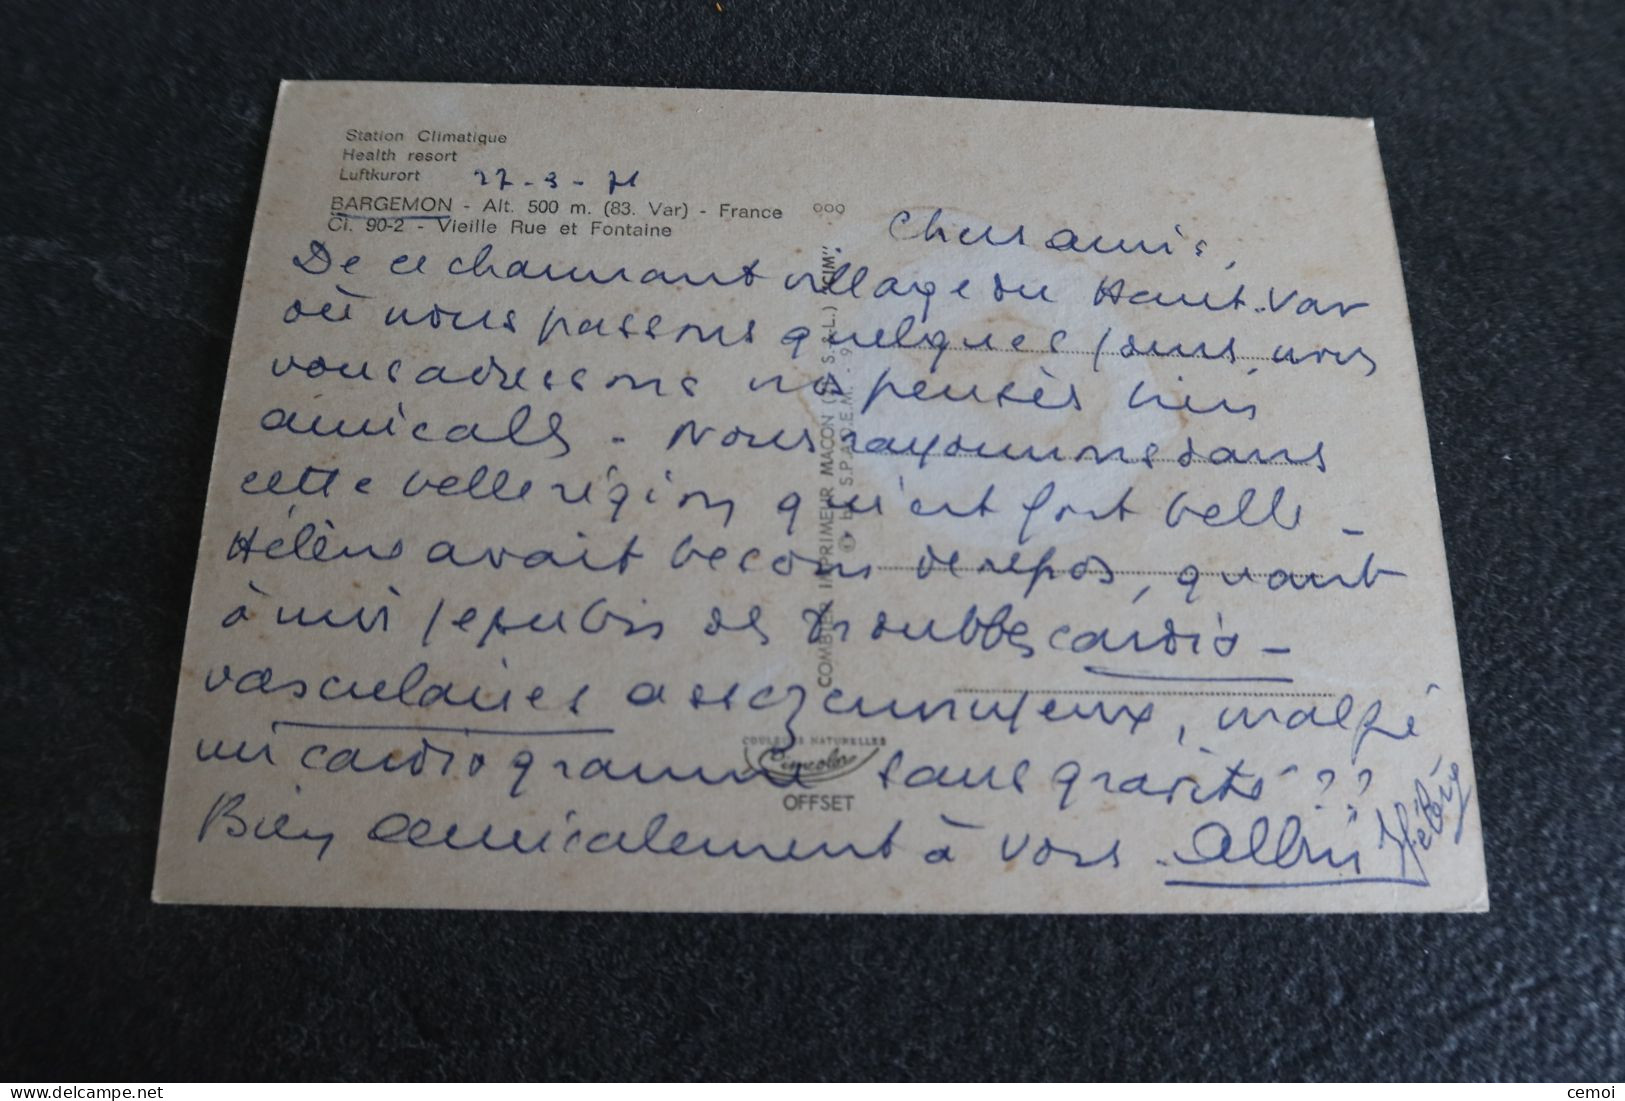 Station Climatique
Health resort
Luftkurort 27-9-71
BARGEMON - Alt. 500 m. (83. Var) - France
Ci. 90-2 - Vieille Rue et Fontaine
Chers amis,
De ce charmant village du Haut-Var
où nous passons quelques jours, nous
vous adressons nos pensées bien
amicales - Nous rayonnons dans
cette belle région qui est fort belle -
Hélène avait besoin de repos, quant
à moi je subis des troubles cardio-
vasculaires assez ennuyeux, malgré
un cardiogramme sans gravité ??
Bien amicalement à vous - Albin
Hélène
COMBIER IMPRIMEUR MACON (S.-&-L.) "CIM"
© by S.P.A.D.E.M.
COULEURS NATURELLES
Cimcolor
OFFSET
delcampe.net
cemoi